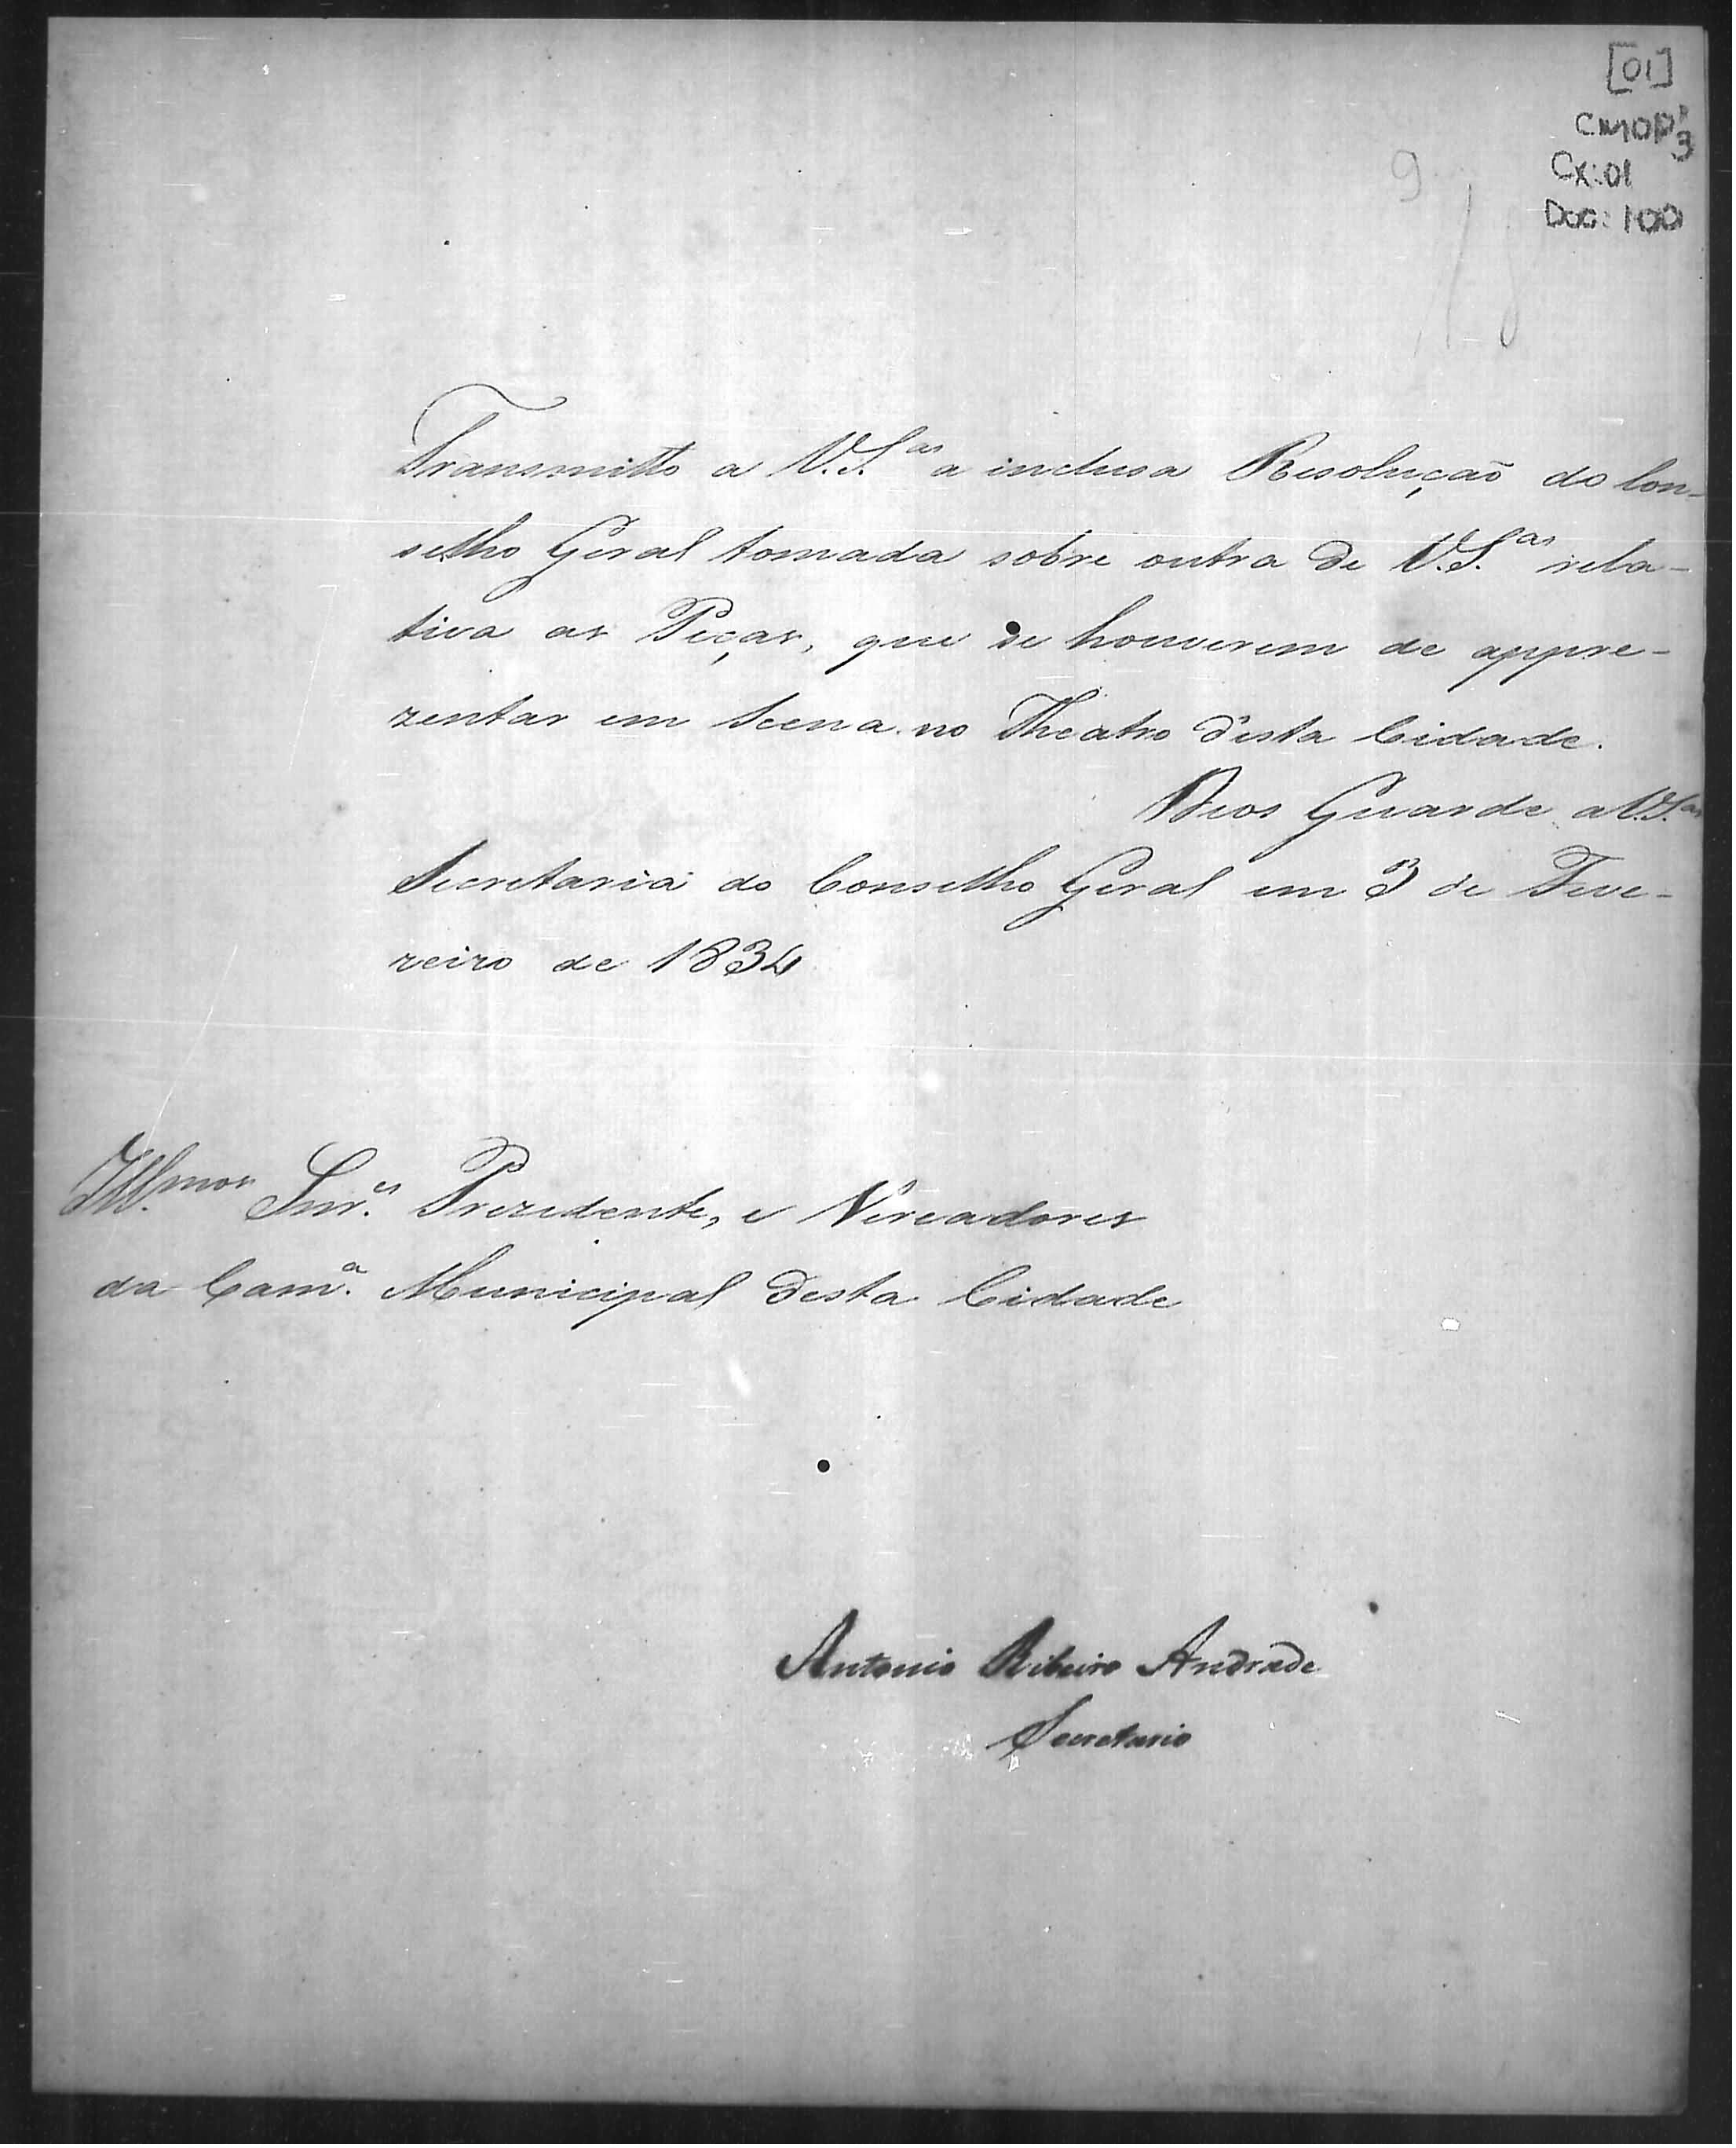 [01]
CMOP 3
Cx: 01
Doc: 100
9
Transmitto a V.S.as a inclusa Resolução do Con-
selho Geral tomada sobre outra de V.S.as rela-
tiva as Peças, que se houverem de appre-
zentar em Scena no Theatro d'esta Cidade.
Deos Guarde a V.S.as
Secretaria do Conselho Geral em 3 de Feve-
reiro de 1834
Ill.mos Snr.es Prezidente, e Vereadores
da Cam.a Municipal desta Cidade
Antonio Ribeiro Andrade
Secretario